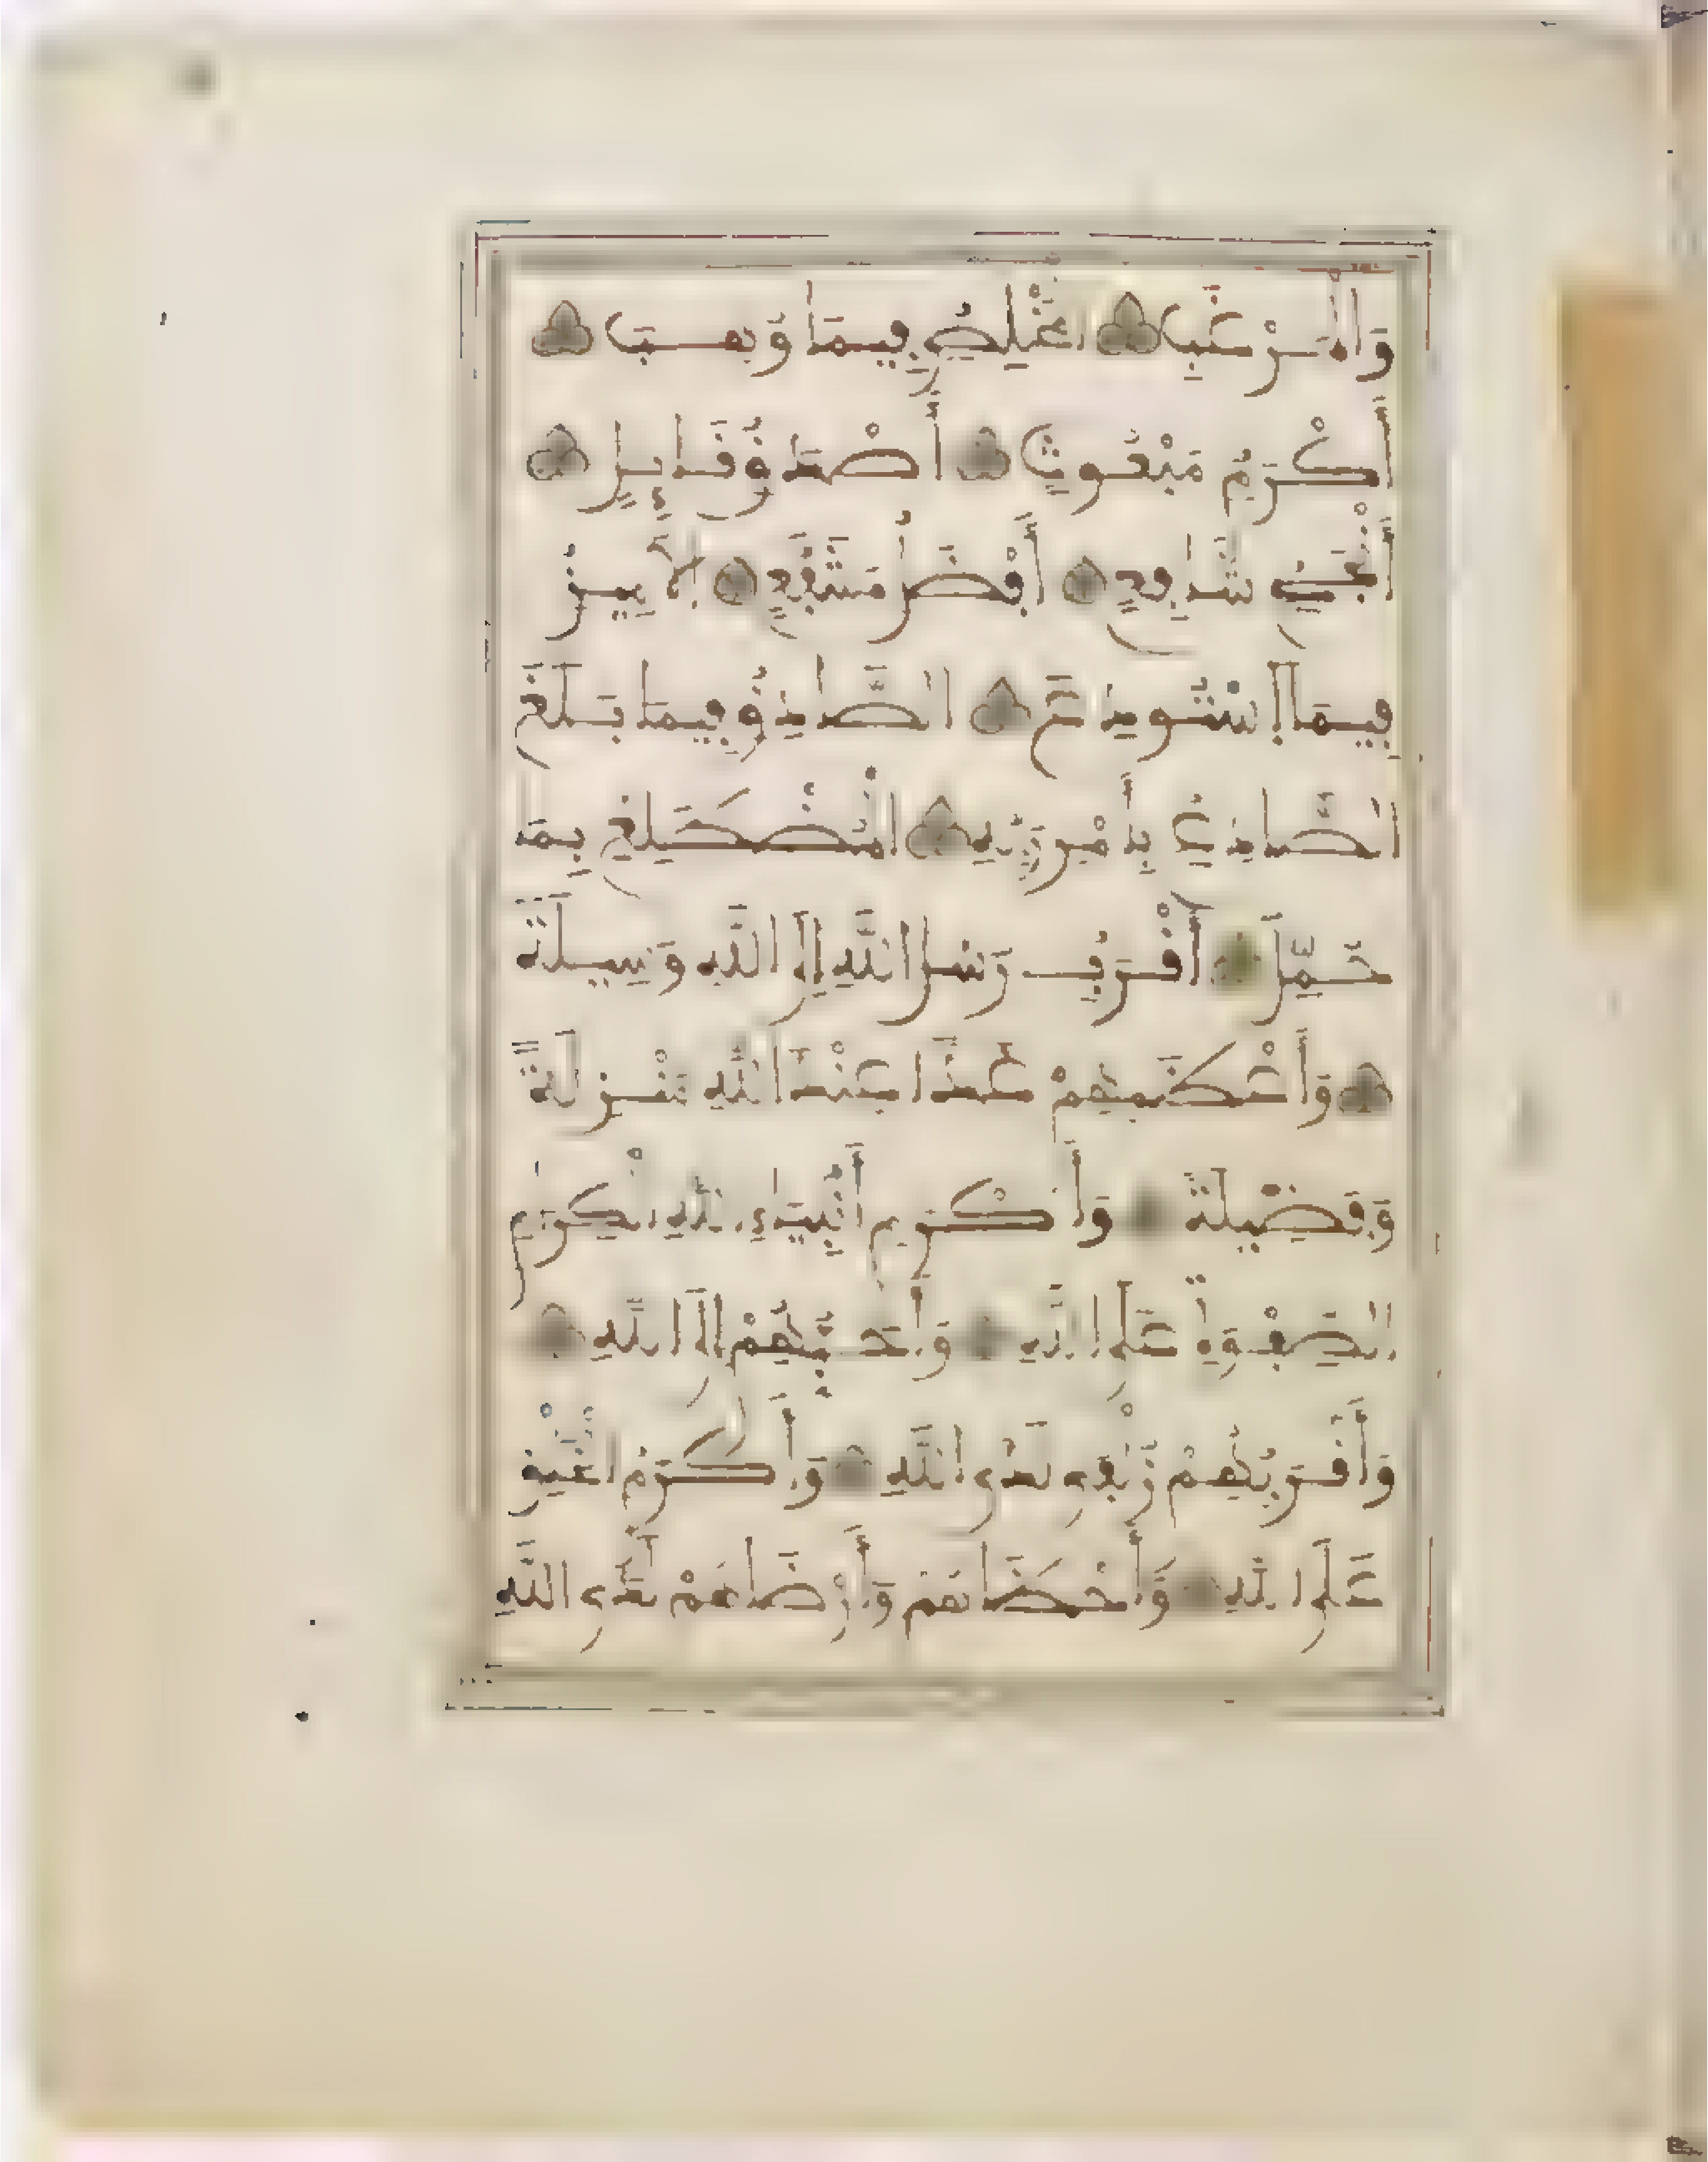 وَالْمَرْكَبِ الْمُخْلِصِ فِيمَا وَهَبَ
أَكْرَمِ مَبْعُوثٍ أَصْدَقِ قَائِلٍ
أَنْجَحِ شَافِعٍ أَفْضَلِ مُشَفَّعٍ الْأَمِينِ
فِيمَا اسْتُودِعَ الصَّادِقِ فِيمَا بَلَّغَ
الصَّادِعِ بِأَمْرِ رَبِّهِ الْمُضْطَلِعِ بِمَا
حُمِّلَ أَقْرَبِ رُسُلِ اللَّهِ إِلَى اللَّهِ وَسِيلَةً
وَأَعْظَمِهِمْ غَدًا عِنْدَ اللَّهِ مَنْزِلَةً
وَفَضِيلَةً وَأَكْرَمِ أَنْبِيَاءِ اللَّهِ الْكِرَامِ
الصَّفْوَةِ عَلَى اللَّهِ وَأَحَبِّهِمْ إِلَى اللَّهِ
وَأَقْرَبِهِمْ زُلْفَى لَدَى اللَّهِ وَأَكْرَمِ الْخَلْقِ
عَلَى اللَّهِ وَأَحْظَاهُمْ وَأَرْضَاهُمْ لَدَى اللَّهِ